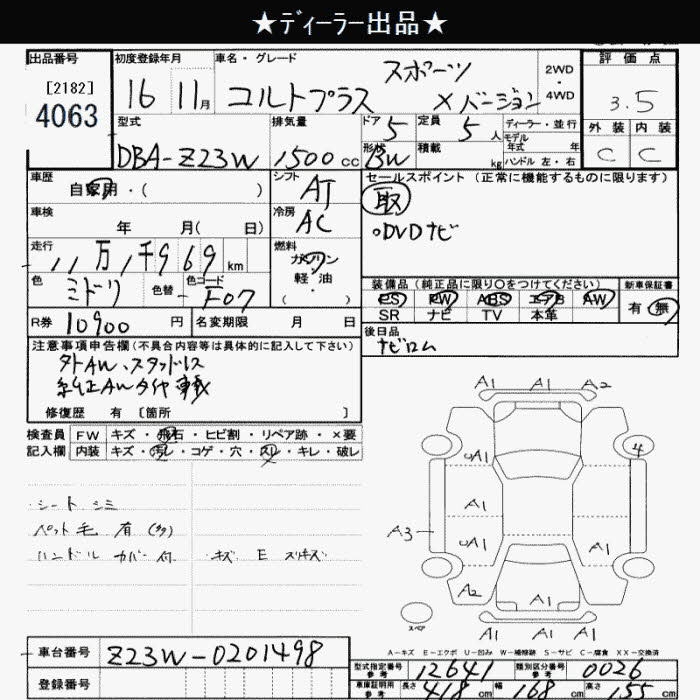 ★ディーラー出品★
出品番号
[2182]
4063
初度登録年月
16 11月
車名・グレード
コルトプラス スポーツ Xバージョン
2WD
・
4WD
評価点
3.5
外装 内装
C C
型式
DBA-Z23W
排気量
1500cc
ドア 5
形状 BW
定員 5人
積載 kg
ディーラー・並行
モデル年式 年
ハンドル 左・右
車歴
自家用・( )
シフト
AT
セールスポイント(正常に機能するものに限ります)
取
○DVDナビ
車検
年 月( 日)
冷房
AC
走行
11万1千969km
燃料
ガソリン
軽油
( ・ )
色
ミドリ
色替
色コード
F07
装備品(純正品に限り○をつけてください)
PS PW ABS エアB AW
SR ナビ TV 本革
新車保証書
有・無
R券 10900円
名変期限 月 日
後日品
ナビロム
注意事項申告欄(不具合内容等は具体的に記入して下さい)
外AW、スタッドレス
純正AWタイヤ車載
修復歴 有 〔箇所 〕
検査員
記入欄
FW キズ・飛石・ヒビ割・リペア跡・×要
内装 キズ・汚レ・コゲ・穴・スレ・キレ・破レ
シート シミ
ペット毛 有 (多)
ハンドル カバー付 ・キズ E スリキズ
A1 A1 A2
4
UA1
A1
A3
UA1
A1
A2
A1
A1 A1 A1
スペア
A-キズ E-エクボ U-凹み W-補修跡 S-サビ C-腐食 XX-交換済
車台番号 Z23W-0201498
登録番号
型式指定番号
参考
12641
類別区分番号
参考
0026
車庫証明用
参考
長さ 418cm 幅 168cm 高さ 155cm